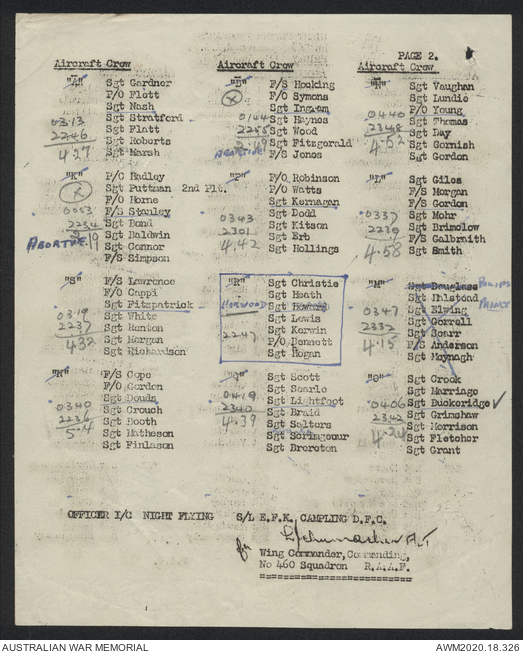 PAGE 2.
Aircraft Crew
Aircraft Crew
Aircraft Crew
Sgt Gardner
P/O Flett
Sgt Nash
Sgt Stratford
Sgt Flatt
Sgt Roberts
Sgt Marsh
0313
2246
4.27
F/S Hocking
P/O Symons
Sgt Ingram
Sgt Haynes
Sgt Wood
Sgt Fitzgerald
F/S Jones
0144
ABORTIVE
Sgt Vaughan
Sgt Lundie
P/O Young
Sgt Thomas
Sgt Day
Sgt Cornish
Sgt Gordon
0440
2348
4.52
"K"
P/O Hadley
Sgt Puttman 2nd Plt.
F/O Horne
F/S Stanley
Sgt Bond
Sgt Baldwin
Sgt Connor
F/S Simpson
0053
2234
ABORTIVE
P/O Robinson
F/O Watts
Sgt Kernagan
Sgt Dodd
Sgt Kitson
Sgt Erb
Sgt Hollings
0343
2301
4.42
"L"
Sgt Giles
F/S Morgan
F/S Gordon
Sgt Mohr
Sgt Brimelow
F/S Galbraith
Sgt Smith
0337
2239
4.58
"S"
F/S Lawrence
F/O Cappi
Sgt Fitzpatrick
Sgt White
Sgt Renton
Sgt Morgan
Sgt Richardson
0319
2237
432
"R"
Sgt Christie
Sgt Heath
Sgt Howard
Sgt Lewis
Sgt Kerwin
P/O Dennett
Sgt Hogan
HORWOOD
2247
"M"
Sgt Douglass
Sgt Halstead
Sgt Elwing
Sgt Gorrell
Sgt Scarr
F/S Anderson
Sgt Maynagh
PHILIPS
0347
2332
4.15
F/S Cope
F/O Gordon
Sgt Douds
Sgt Crouch
Sgt Booth
Sgt Matheson
Sgt Finlason
0340
2236
5.4
Sgt Scott
Sgt Searle
Sgt Lightfoot
Sgt Braid
Sgt Salters
Sgt Scrimgeour
Sgt Brereton
0419
2340
4.39
"O"
Sgt Crook
Sgt Marriage
Sgt Buckeridge
Sgt Grimshaw
Sgt Morrison
Sgt Fletcher
Sgt Grant
0406
2342
4.24
OFFICER I/C NIGHT FLYING S/L E.F.K. CAMPLING D.F.C.
for
Wing Commander, Commanding,
No 460 Squadron R.A.A.F.
AUSTRALIAN WAR MEMORIAL
AWM2020.18.326